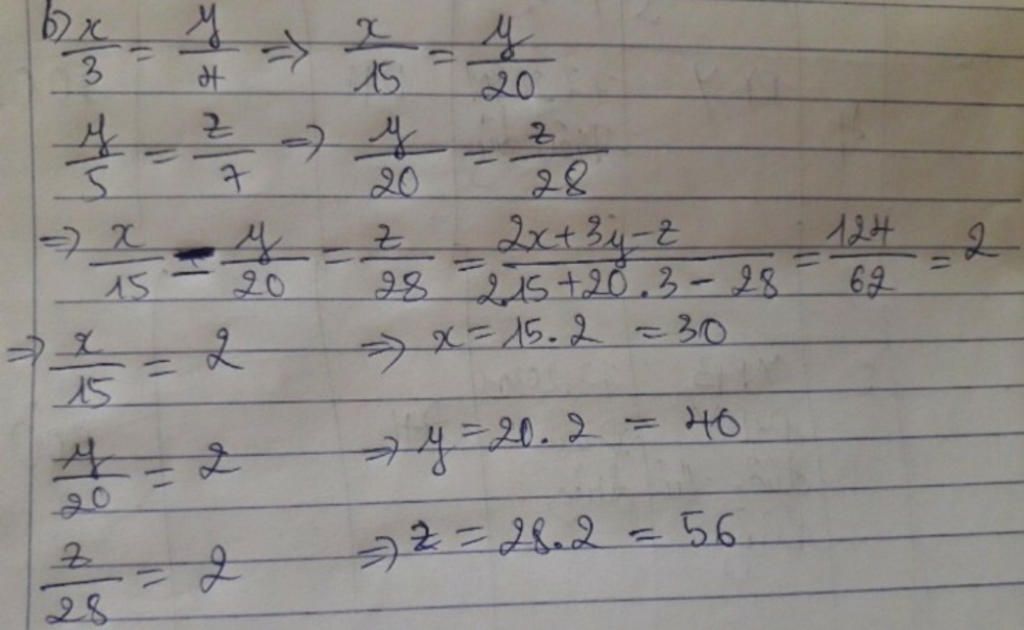 b) x/3 = y/4 => x/15 = y/20
y/5 = z/7 => y/20 = z/28
=> x/15 = y/20 = z/28 = (2x+3y-z)/(2.15+20.3-28) = 124/62 = 2
=> x/15 = 2 => x = 15.2 = 30
y/20 = 2 => y = 20.2 = 40
z/28 = 2 => z = 28.2 = 56